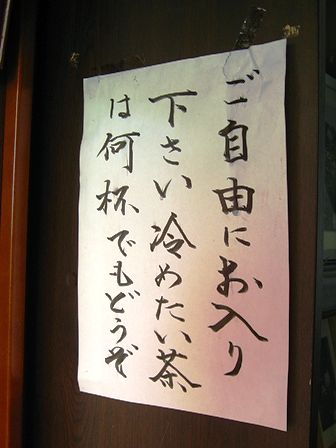 ご自由にお入り
下さい冷めたい茶
は何杯でもどうぞ